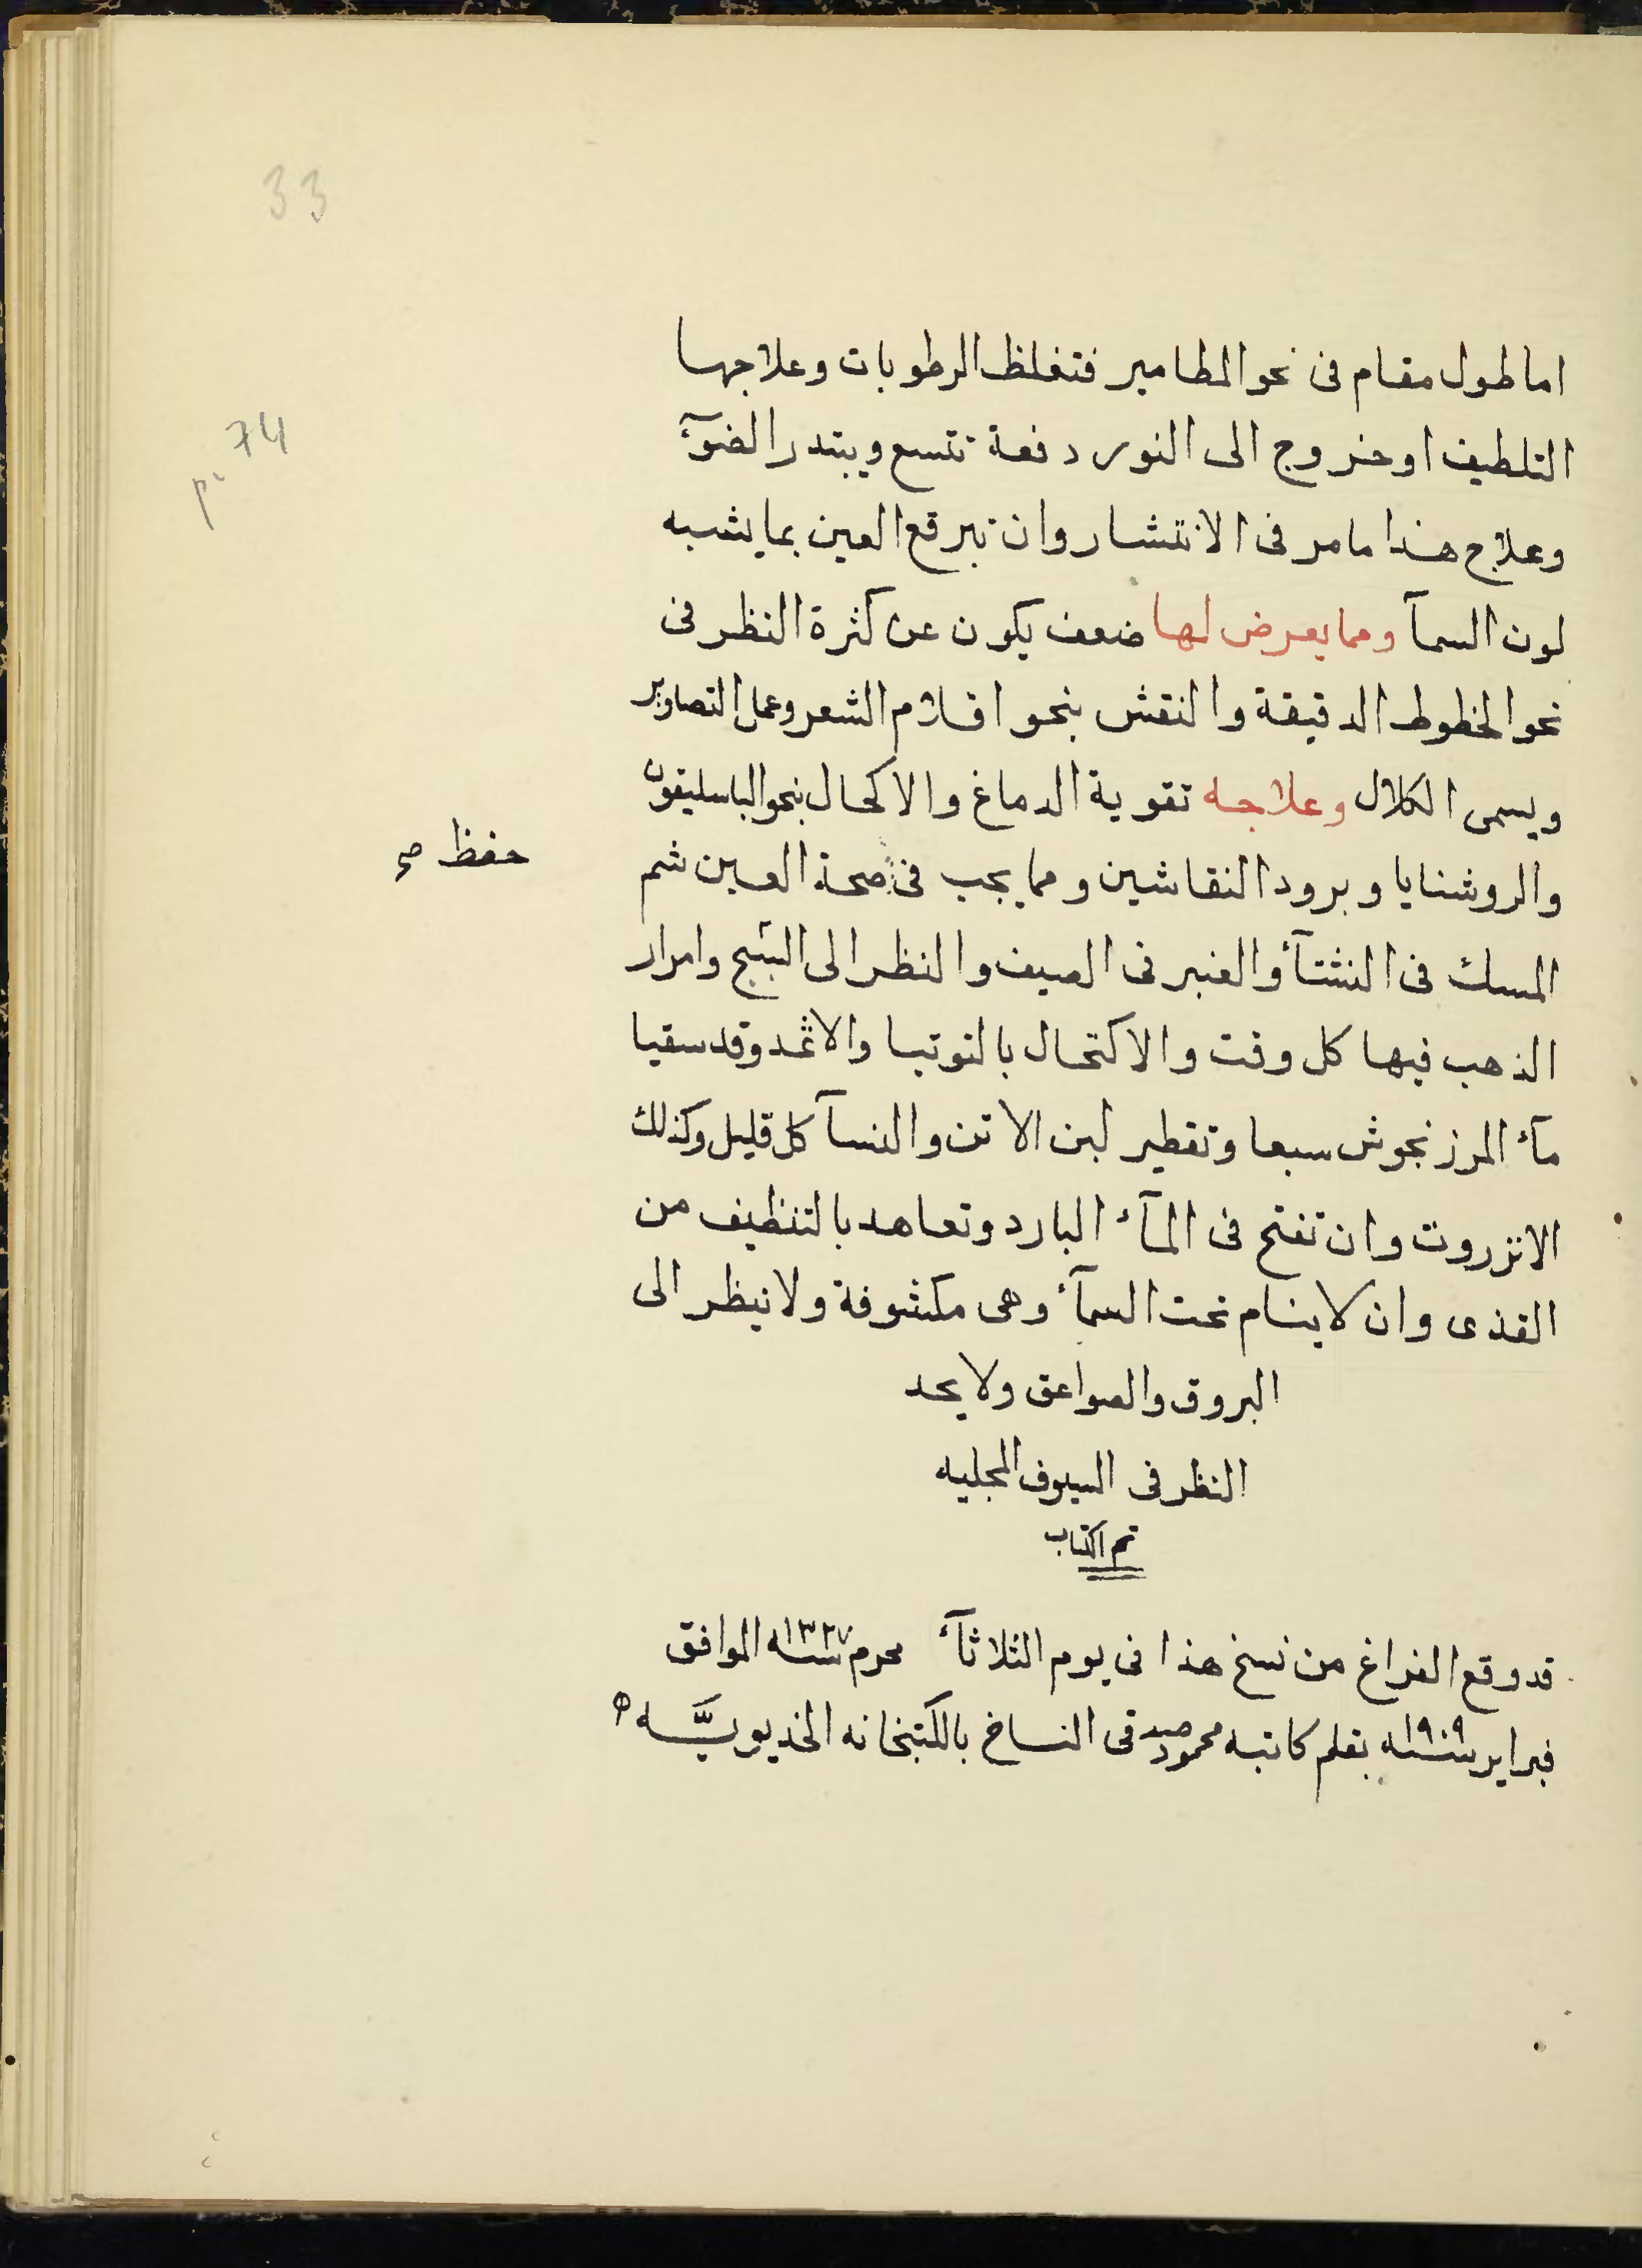 33
اما طول مقام فى نحو المطامير فتغلظ الرطوبات وعلاجها
p. 74
التلطيف او خروج الى النور دفعة تتسع ويبتدر الضوٓء
وعلاج هذا مامر فى الانتشار وان تبرقع العين بما يشبه
لون السمآ ومما يعرض لها ضعف يكون عن كثرة النظر فى
نحو الخطوط الدقيقة والنقش بنحو اقلام الشعر وعمل التصاوير
ويسمى الكلال وعلاجه تقوية الدماغ والاكحال بنحو الباسليقون
والروشنايا وبرود النقاشين ومما يجب فى صحة العين شم
حفظ صح
المسك فى الشتآء والعنبر فى الصيف والنظر الى السبج وامرار
الذهب فيها كل وقت والاكتحال بالتوتيا والاثمد وقد سقيا
مآء المرزنجوش سبعا وتقطير لبن الاتن والنسآ كل قليل وكذلك
الانزروت وان تفتح فى المآء البارد وتعاهد بالتنظيف من
القذى وان لا ينام تحت السمآء وهى مكشوفة ولا ينظر الى
البروق والصواعق ولا يحد
النظر فى السيوف المجليه
تم الكتاب
قد وقع الفراغ من نسخ هذا فى يوم الثلاثآء محرم سنة ١٣٢٧ الموافق
فبراير سنة ١٩٠٩ بقلم كاتبه محمود صدقى النساخ بالكتبخانه الخديويَّه